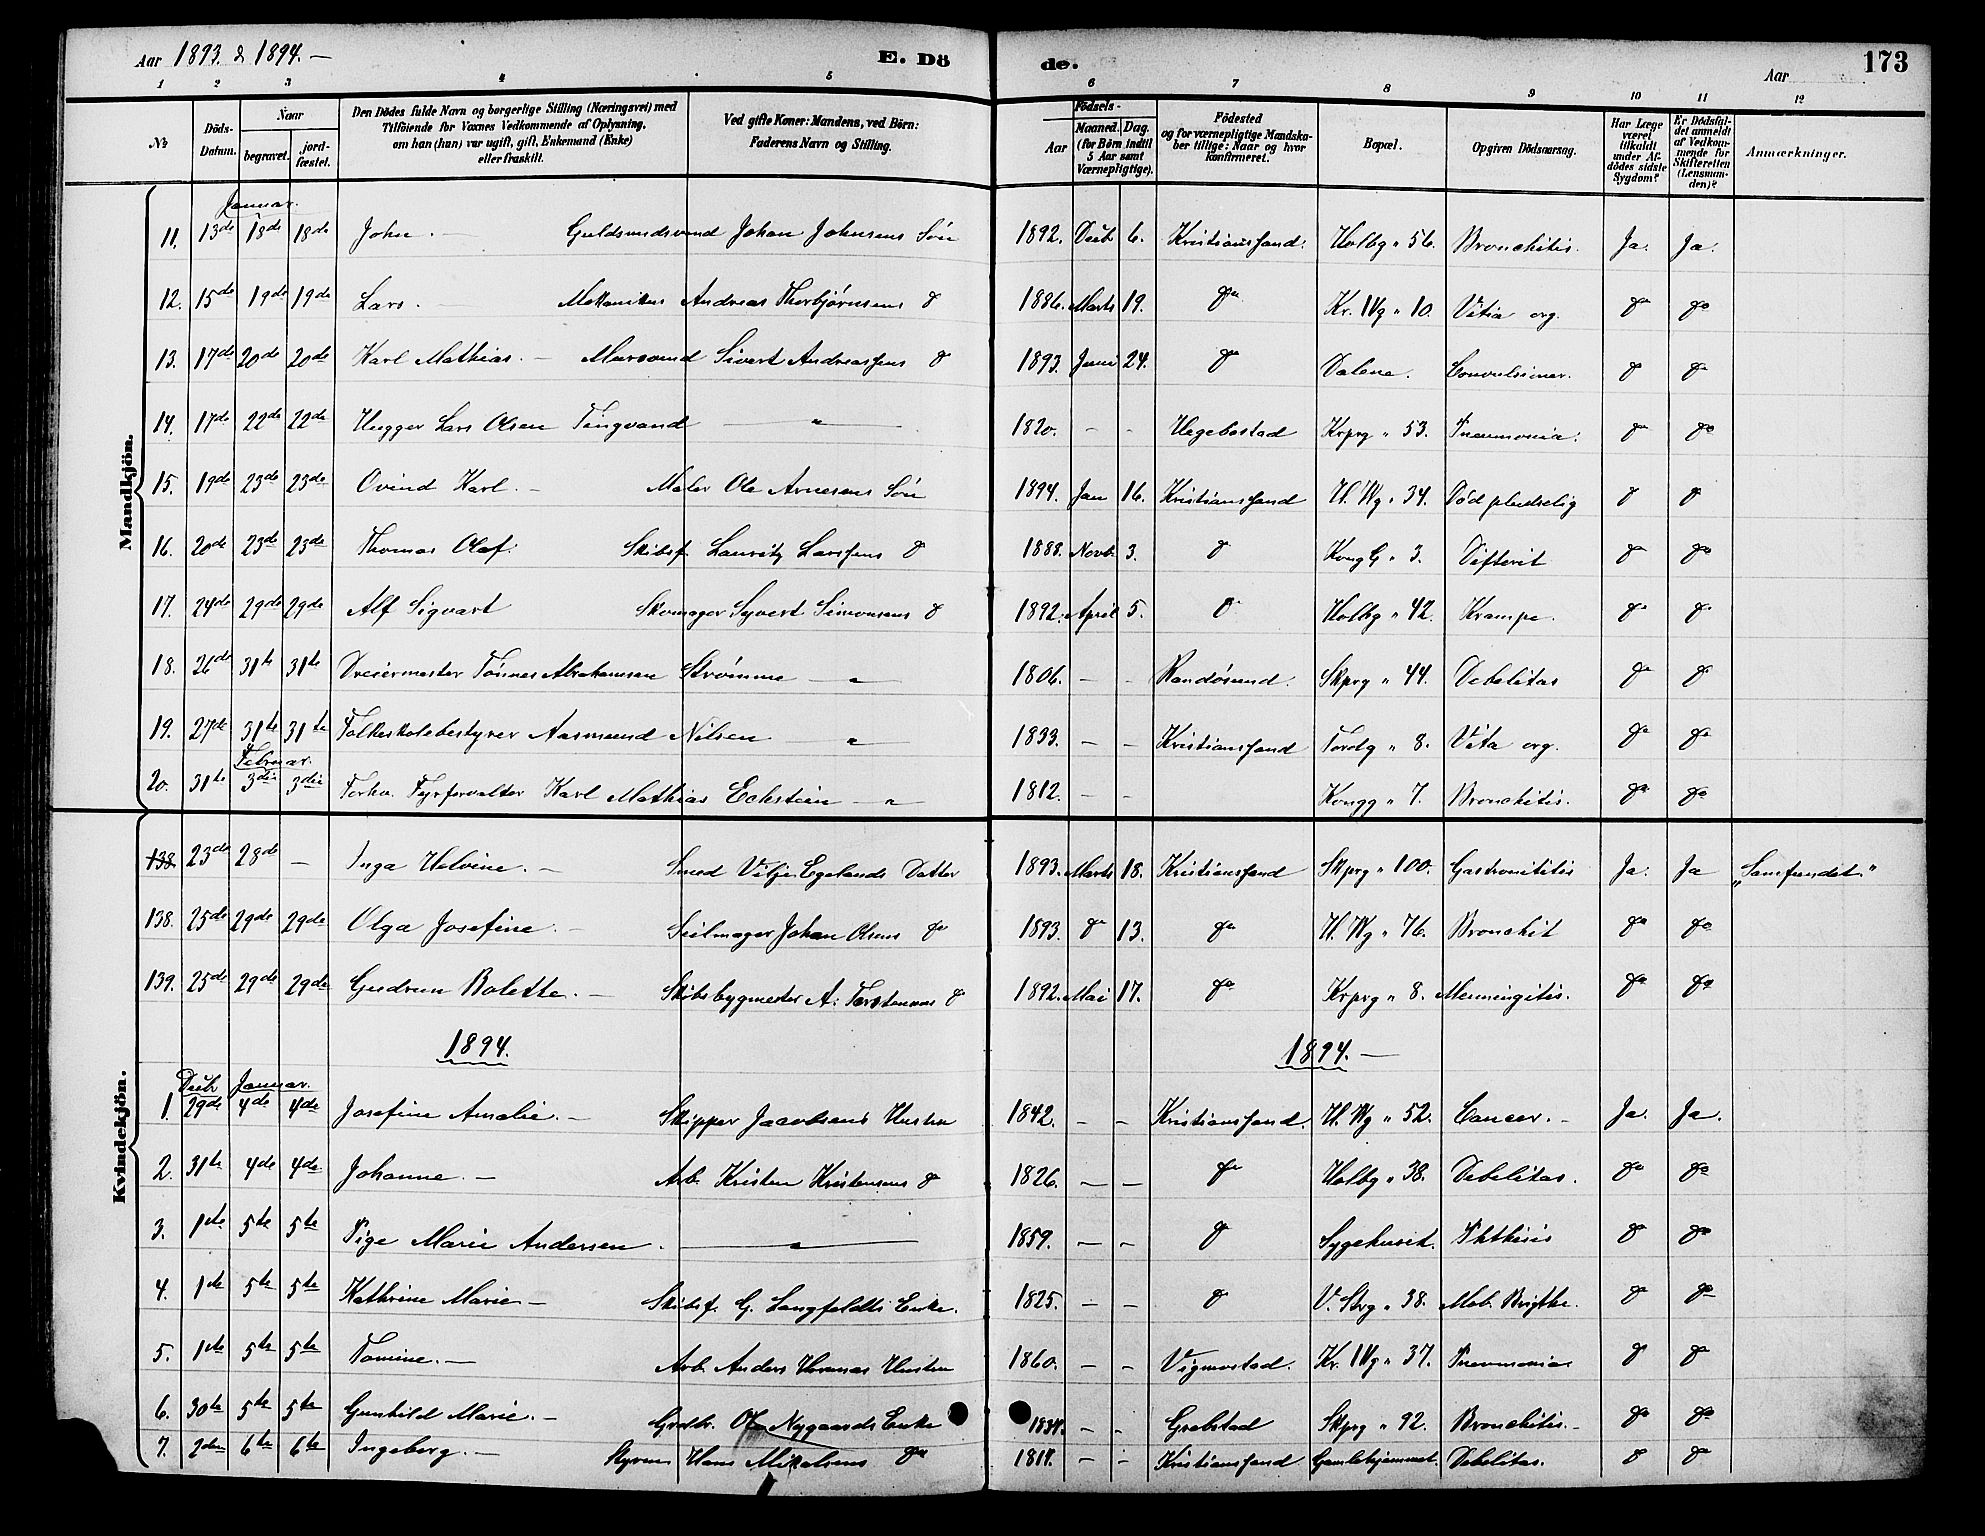 Aar 1893 & 1894. —
E. Dö
de.
Aar
173
1 2 3 4 5 6 7 8 9 10 11 12
No
Döds-Datum.
Naar
begravet.
jordfæstet.
Den Dödes fulde Navn og borgerlige Stilling (Næringsvei) med Tilföiende for Voxnes Vedkommende af Oplysning, om han (hun) var ugift, gift, Enkemand (Enke) eller fraskilt.
Ved gifte Koner: Mandens, ved Börn: Faderens Navn og Stilling.
Födsels-
Aar
Maaned. Dag.
(for Börn indtil 5 Aar samt Værnepligtige).
Födested og for værnepligtige Mandskaber tillige: Naar og hvor konfirmeret.
Bopæl.
Opgiven Dödsaarsag.
Har Læge været tilkaldt under Afdödes sidste Sygdom?
Er Dödsfaldet anmeldt af Vedkommende for Skifteretten (Lensmanden)?
Anmærkninger.
Mandkjön.
Januar.
11. 13de 18de 18de John. — Guldsmedsvend Johan Johnsens Søn 1892. Decb 6. Kristianssand. Holbg " 56. Bronchitis. Ja. Ja.
12. 15de 19de 19de Lars. — Mekaniker Andreas Thorbjørnsens do 1886. Marts 19. do Kr. IVg " 10. Vitia org. do do
13. 17de 20de 20de Karl Mathias. — Mursvend Sivert Andreassens do 1893. Juni 24. do Dalene. Convulsioner. do do
14. 17de 22de 22de Lars Olsen Tingvand — " — 1820. - - Hegebostad Krprg " 53. Pneumonia. do do
15. 19de 23de 23de Ovind Karl. — Maler Ole Arnesens Søn 1894. Jan 16. Kristianssand H. Wg " 34. Død pludselig do do
16. 20de 23de 23de Thomas Olaf. Skibsf. Lauritz Larssens do 1888. Novb. 3. do Kong G " 3. Difterit do do
17. 24de 29de 29de Alf Sigvart Skomager Syvert Simonsens do 1892. April 5. do Holbg " 42. Krampe. do do
18. 26de 31te 31te Dreiermester Tønnes Abrahamsen Strømme — " 1806. - - Randøsund. Skprg " 44. Debelitas do do
19. 27de 31te 31te Folkeskolebestyrer Aasmund Nilsen " 1833. - - Kristianssand Tordg " 8. Vita org. do do
Februar.
20. 31te 3die 3die Forhv. Fyrforvalter Karl Mathias Eckstein — " 1812. - - Kongg " 7. Bronchitis. do do
Kvindekjön.
138 23de 28de — Inga Helvine. — Smed Vilje Egelands Datter 1893. Marts 18. Kristianssand Skprg " 100. Ja. Ja "Samfundet."
138. 25de 29de 29de Olga Josefine. — Seilmager Johan Olsens do 1893. do 13. do H. Wg " 76. Bronchit do do
139. 25de 29de 29de Gudrun Bolette. — Skibsbygmester A. do 1892. Mai 17. do Krprg " 8. Menningitis. do do
1894.
1894. —
Decb Januar.
1. 29de 4de 4de Josefine Amalie. — Skipper Jacobsens Hustru 1842. - - Kristianssand. H. Wg " 52. Cancer. - Ja. Ja.
2. 31te 4de 4de Johanne. — Arb. Kristen Kristensens do 1826. - - do Holbg " 38. Debelitas. do do
3. 1ste 5te 5te Pige Marie Andersen. — " — 1859. - - do Sygehuset. Phthisis do do
4. 1ste 5te 5te Kathrine Marie — Skibsf. G. Langfeldts Enke. 1825. - - do V. Strg " 38. Mob. Brigthe. do do
5. 1ste 5te 5te Tomine. — Arb. Anders Hustru 1860. - - Vigmostad. Kr. IVg " 37. Pneumonia do do
6. 30te 5te 5te Gunhild Marie. — Ole Nygaards Enke - - Skprg " 92. Bronchitis. - do do
7. 2den 6te 6te Ingeborg. — Styrm. Hans Mikalsens do - - Kristianssand Gamlehjemmet. Debelitas. do do